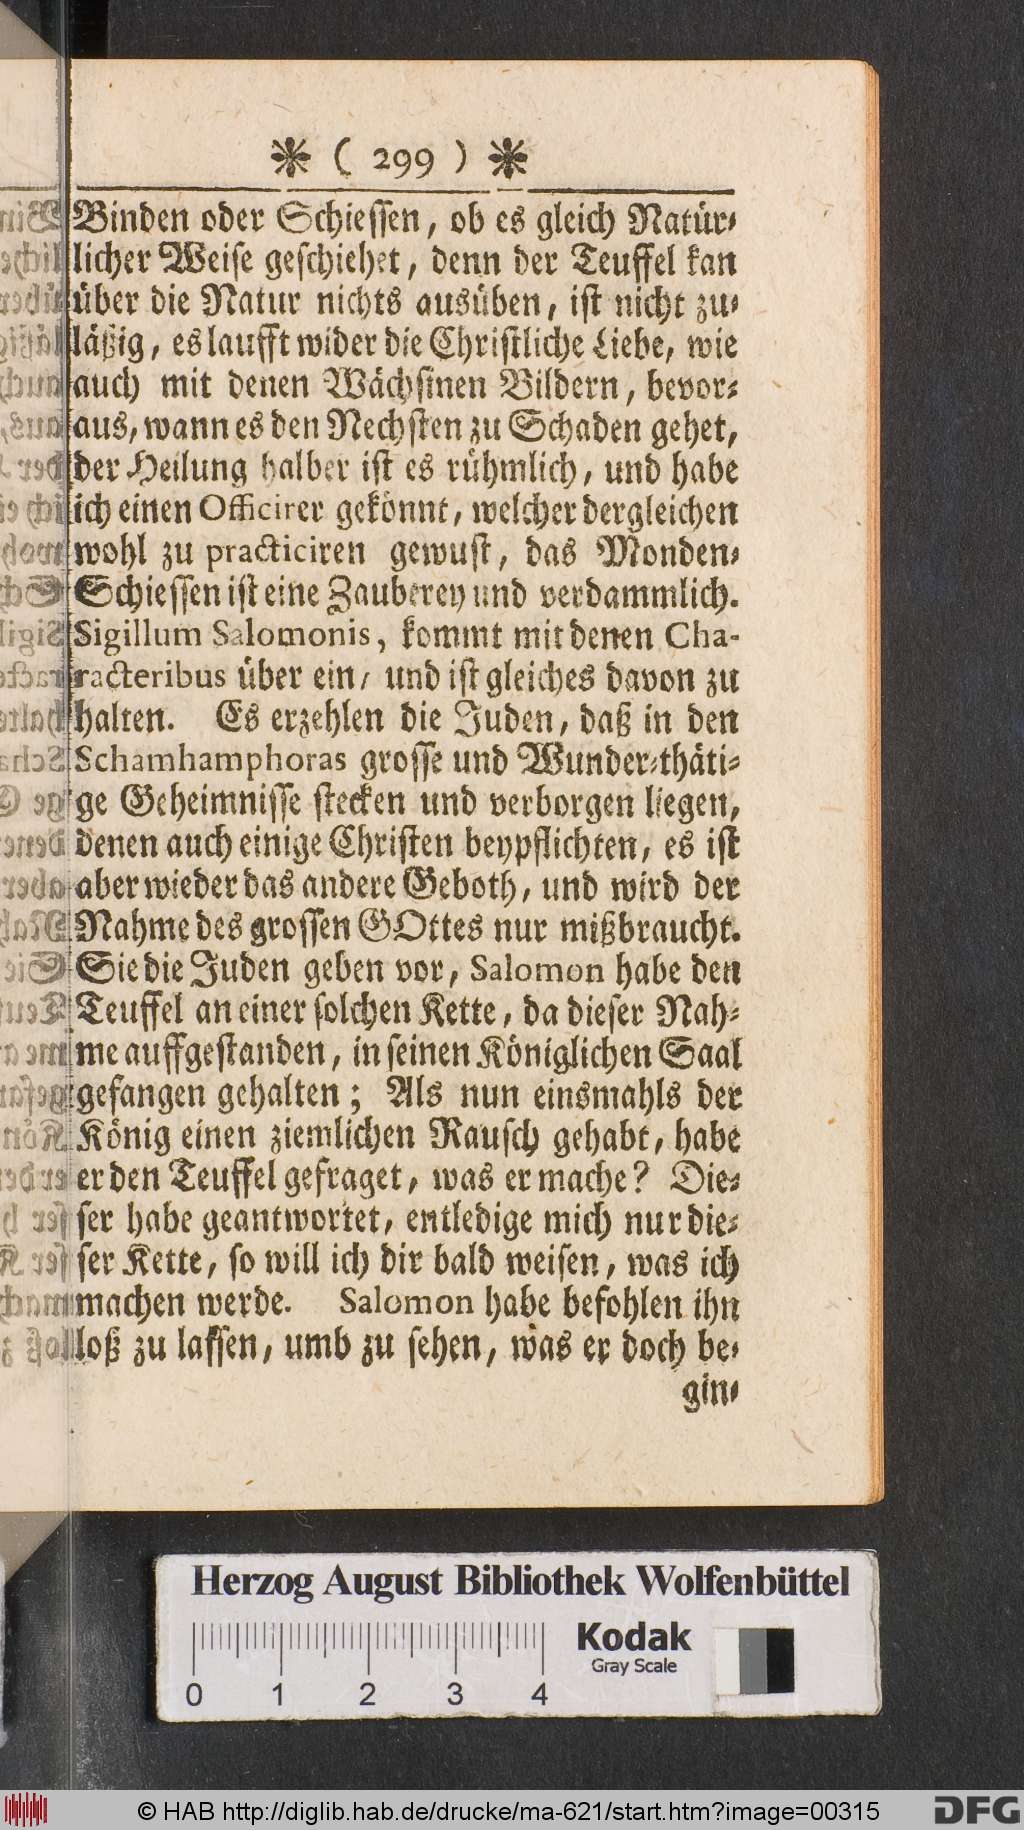 * ( 299 ) *
Binden oder Schiessen, ob es gleich Natür-
licher Weise geschiehet, denn der Teuffel kan
über die Natur nichts ausüben, ist nicht zu-
läßig, es laufft wider die Christliche Liebe, wie
auch mit denen Wächsinen Bildern, bevor-
aus, wann es den Nechsten zu Schaden gehet,
der Heilung halber ist es rühmlich, und habe
ich einen Officirer gekönnt, welcher dergleichen
wohl zu practiciren gewust, das Monden-
Schiessen ist eine Zauberey und verdammlich.
Sigillum Salomonis, kommt mit denen Cha-
racteribus über ein, und ist gleiches davon zu
halten. Es erzehlen die Juden, daß in den
Schamhamphoras grosse und Wunder-thäti-
ge Geheimnisse stecken und verborgen liegen,
denen auch einige Christen beypflichten, es ist
aber wieder das andere Geboth, und wird der
Nahme des grossen GOttes nur mißbraucht.
Sie die Juden geben vor, Salomon habe den
Teuffel an einer solchen Kette, da dieser Nah-
me auffgestanden, in seinen Königlichen Saal
gefangen gehalten; Als nun einsmahls der
König einen ziemlichen Rausch gehabt, habe
er den Teuffel gefraget, was er mache? Die-
ser habe geantwortet, entledige mich nur die-
ser Kette, so will ich dir bald weisen, was ich
machen werde. Salomon habe befohlen ihn
loß zu lassen, umb zu sehen, was er doch be-
gin-
Herzog August Bibliothek Wolfenbüttel
Kodak
Gray Scale
0 1 2 3 4
© HAB http://diglib.hab.de/drucke/ma-621/start.htm?image=00315
DFG